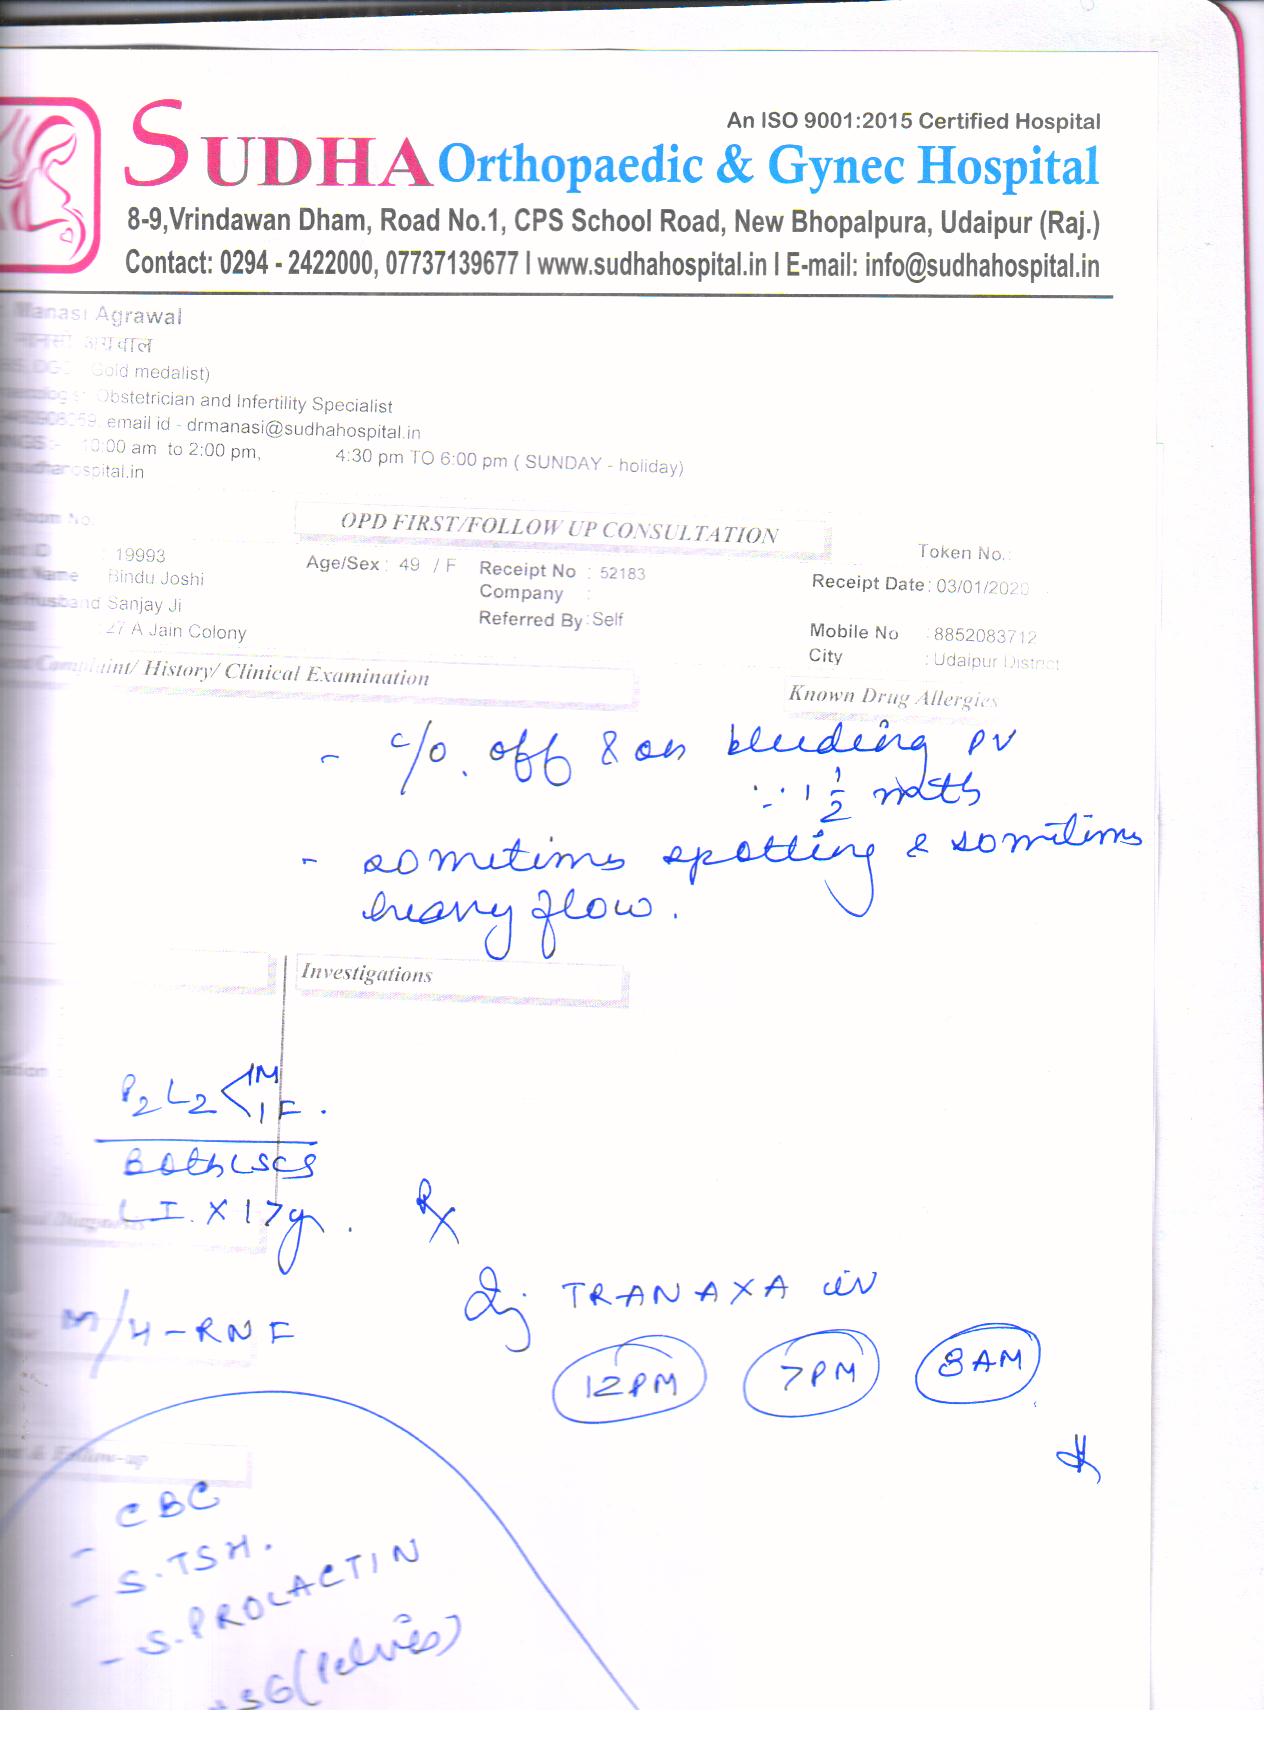 An ISO 9001:2015 Certified Hospital
SUDHA Orthopaedic & Gynec Hospital
8-9,Vrindawan Dham, Road No.1, CPS School Road, New Bhopalpura, Udaipur (Raj.)
Contact: 0294 - 2422000, 07737139677 I www.sudhahospital.in I E-mail: info@sudhahospital.in
Manasi Agrawal
मानसी अग्रवाल
Gold medalist)
Obstetrician and Infertility Specialist
email id - drmanasi@sudhahospital.in
10:00 am to 2:00 pm, 4:30 pm TO 6:00 pm ( SUNDAY - holiday)
Room No.
OPD FIRST/FOLLOW UP CONSULTATION
Token No.:
: 19993
Age/Sex : 49 / F
Receipt No : 52183
Receipt Date: 03/01/2020
Name : Bindu Joshi
Company :
Husband Sanjay Ji
Referred By : Self
Mobile No : 8852083712
: 27 A Jain Colony
City : Udaipur District
Complaint/ History/ Clinical Examination
Known Drug Allergies
- c/o. off & on bleeding PV
∵ 1 1/2 mnths
- sometims spotting & sometims
heavy flow.
Investigations
P2L2 < 1M
1F.
Both LSCS
LI. X 17y.
Rx
M/H - RNF
Inj TRANAXA iv
12PM 7PM 8AM
& Follow-up
- CBC
- S.TSH.
- S.PROLACTIN
(Pelvis)